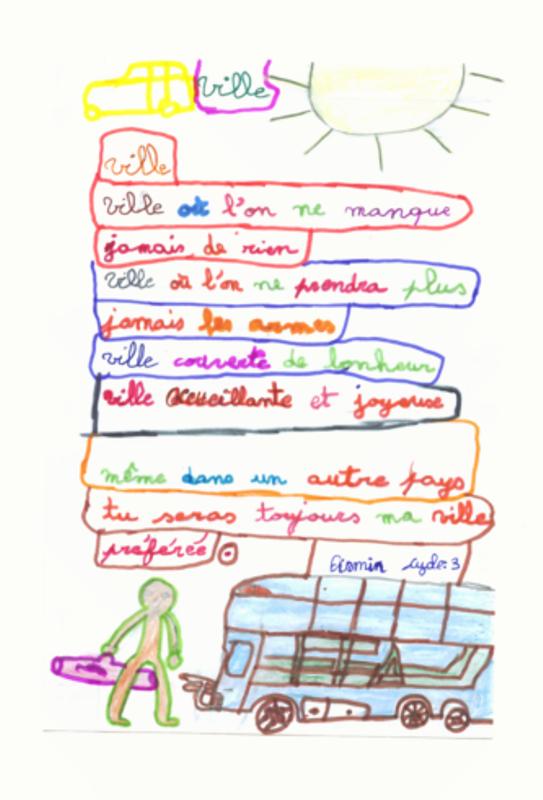 ville
ville
ville où l'on ne manque
jamais de rien
ville où l'on ne prendra plus
jamais les armes
ville couverte de bonheur
ville accueillante et joyeuse
même dans un autre pays
tu seras toujours ma ville
préférée.
cycle: 3